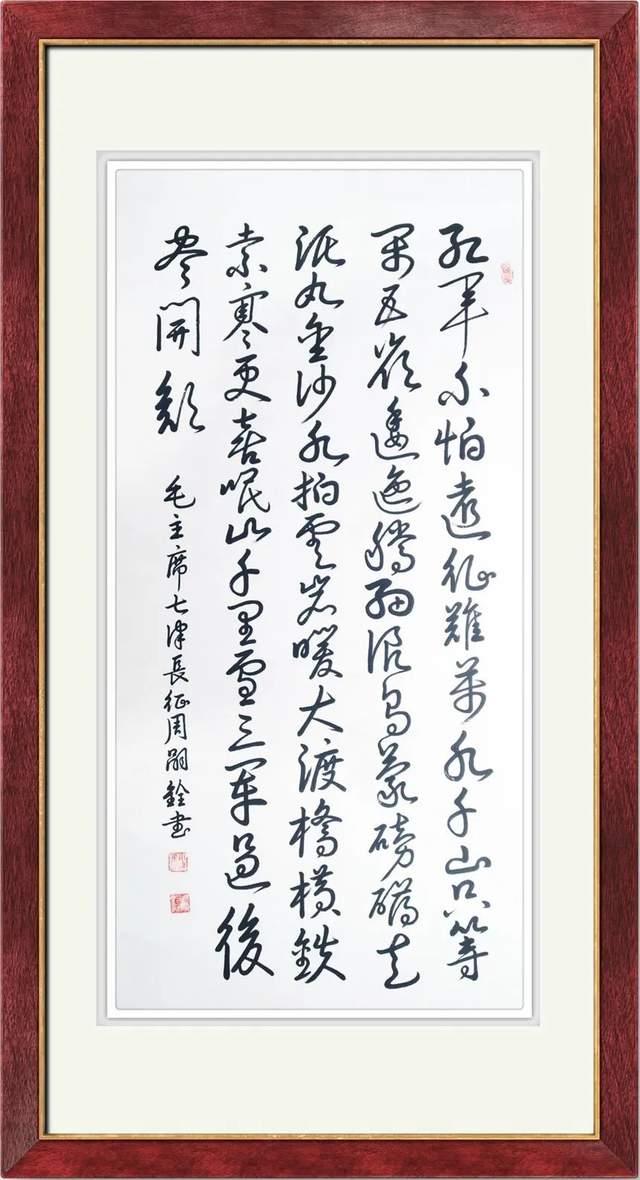 紅軍不怕遠征難萬水千山只等
閑五嶺逶迤騰細浪烏蒙磅礴走
泥丸金沙水拍雲岩暖大渡橋橫鐵
索寒更喜岷山千里雪三軍過後
盡開顏
毛主席七律長征周嗣銓書